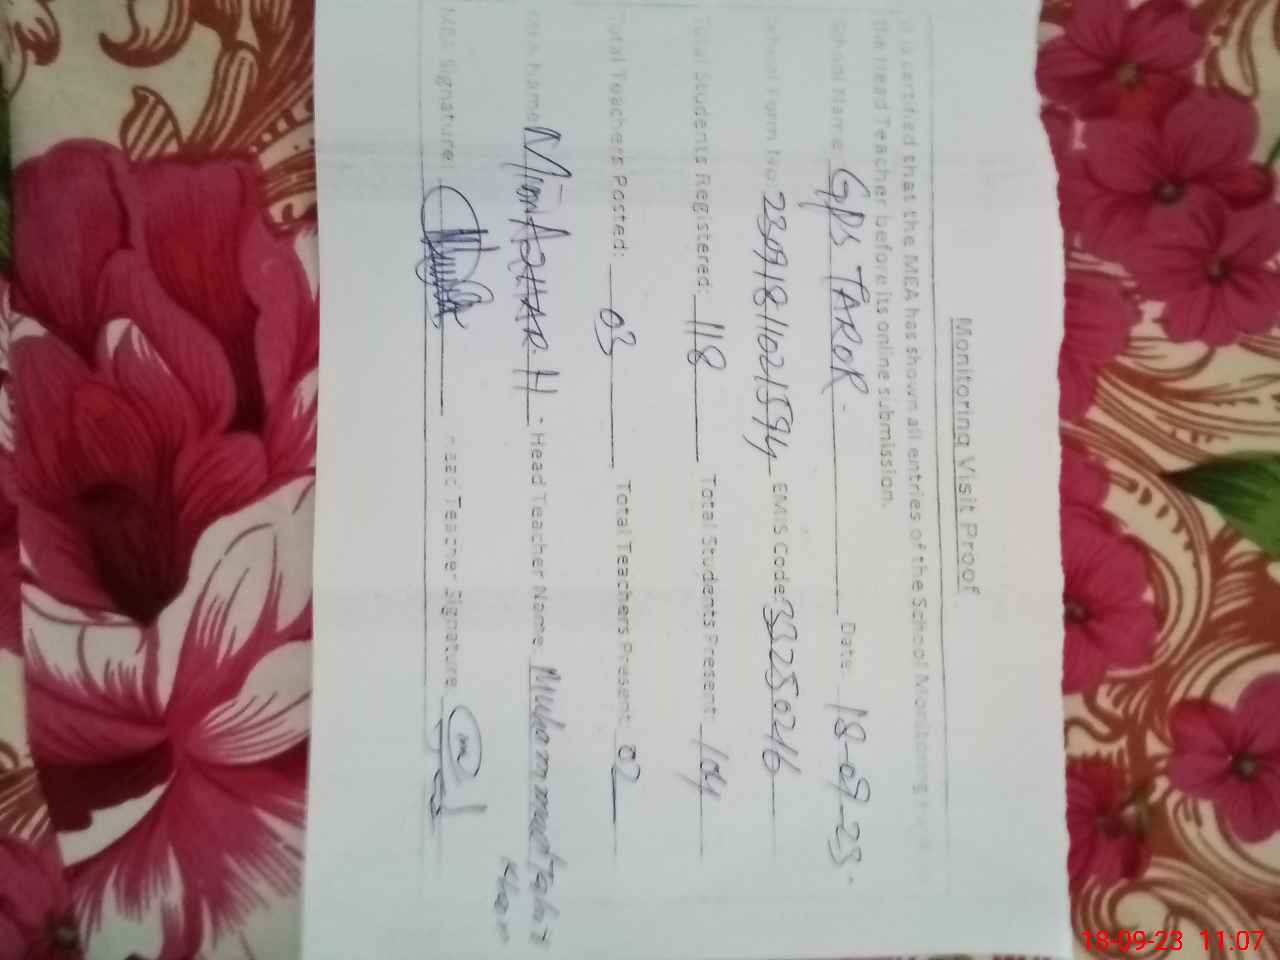 Monitoring Visit Proof
It is certified that the MEA has shown all entries of the School Monitoring
the Head Teacher before its online submission.
School Name GPS TAROR. Date: 18-09-23.
School Form No: 23091811021594 EMIS Code: 33250216
Total Students Registered: 118 Total Students Present: 104
Total Teachers Posted: 03 Total Teachers Present: 02
MEA Name Mian AZHAR. H Head Teacher Name: Muhammad Tahir
Khan
MEA Signature: Head Teacher Signature
18-09-23 11:07